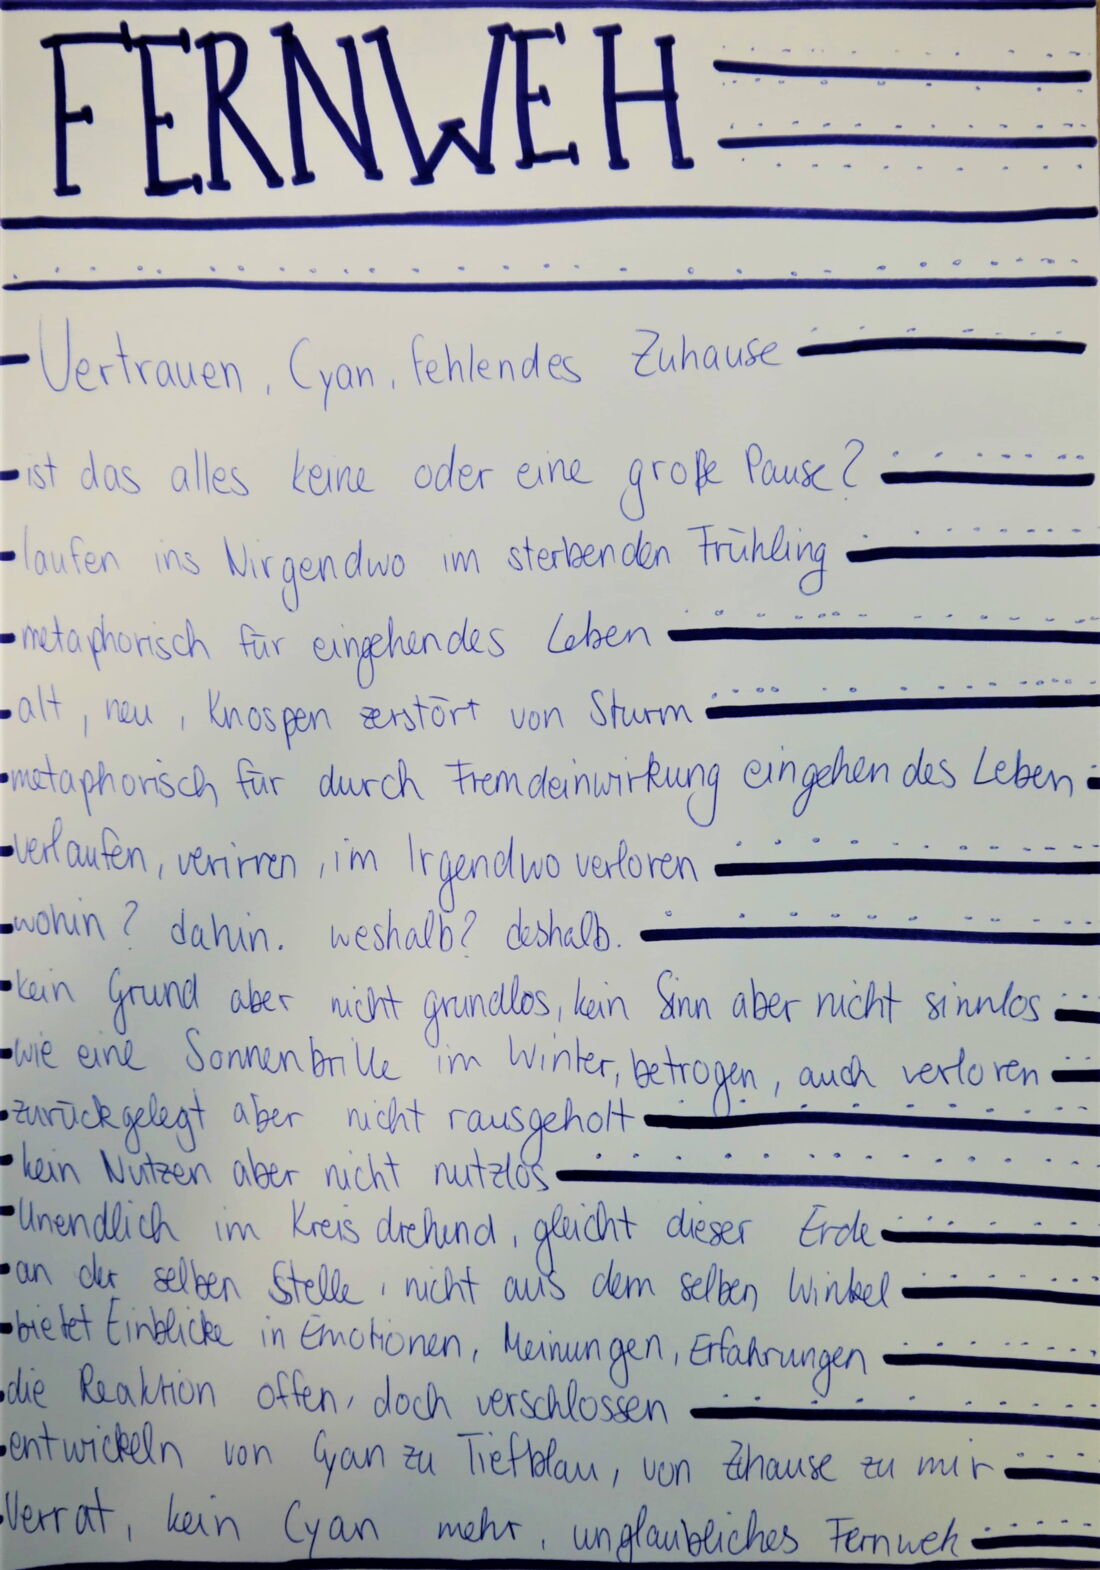 FERNWEH
Vertrauen, Cyan, fehlendes Zuhause
ist das alles keine oder eine große Pause?
laufen ins Nirgendwo im sterbenden Frühling
metaphorisch für eingehendes Leben
alt, neu, Knospen zerstört von Sturm
metaphorisch für durch Fremdeinwirkung eingehendes Leben
verlaufen, verirren, im Irgendwo verloren
wohin? dahin. weshalb? deshalb.
kein Grund aber nicht grundlos, kein Sinn aber nicht sinnlos
wie eine Sonnenbrille im Winter, betrogen, auch verloren
zurückgelegt aber nicht rausgeholt
kein Nutzen aber nicht nutzlos
Unendlich im Kreis drehend, gleicht dieser Erde
an der selben Stelle, nicht aus dem selben Winkel
bietet Einblicke in Emotionen, Meinungen, Erfahrungen
die Reaktion offen, doch verschlossen
entwickeln von Cyan zu Tiefblau, von Zuhause zu mir
Verrat, kein Cyan mehr, unglaubliches Fernweh